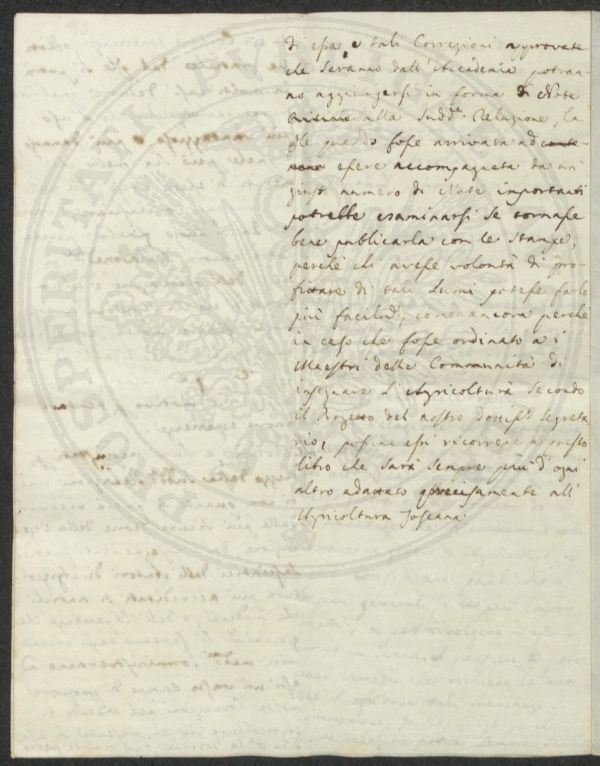 di essa, e tali Correzioni approvate
che saranno dall'Accademia potran-
no aggiungersi in forma di Note
Critiche alla Sudd.e Relazione, la
q̃le quando fosse arrivata ad
essere accompagnata da un
giusto numero di Note importanti
potrebbe esaminarsi se tornasse
bene publicarla con le stampe,
perchè chi avesse volontà di pro-
fittare di tali Lumi potesse farlo
più facilm.e, come ancora perchè
in caso che fosse ordinato a i
Maestri delle Communità di
insegnare l'Agricoltura secondo
il Progetto del nostro Dottiss.o Segreta
rio, possino essi ricorrere a questo
libro che sarà sempre più d'ogni
altro adattato precisamente all'
Agricoltura Toscana
PROSPERITATI AVGENDAE